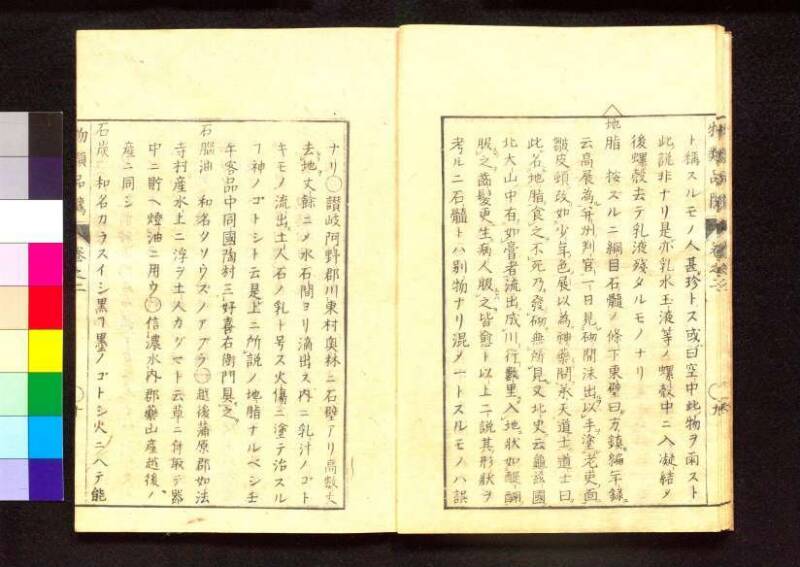 ト稱スルモノ人甚珍トス或曰空中此物ヲ雨スト
此説非ナリ是亦乳水玉液等ノ螺殻中ニ入凝結メ
後螺殻去テ乳液殘タルモノナリ
地脂 按スルニ綱目石髓ノ條下東璧曰方鎮編年錄
云高展為并州判官一日見砌間沫出以手塗老吏面
皺皮頓改如少年色展以為神藥問承天道士道士曰
此名地脂食之不死乃發砌無所見又北史云龜茲國
北大山中有如膏者流出成川行數里入地狀如醍醐
服之齒髮更生病人服之皆愈ト以上ニ説其形狀ヲ
考ルニ石髓トハ別物ナリ混メ一トスルモノハ誤
ナリ○讃岐阿野郡川東村奥林ニ石壁アリ高數丈
去地丈餘ニメ水石間ヨリ滴出ス内ニ乳汁ノゴト
キモノ流出土人石ノ乳ト号ス火傷ニ塗テ治スル
ヿ神ノゴトシト云是上ニ所説ノ地脂ナルベシ壬
午客品中同國陶村三好喜右衛門具之
石腦油 和名クソウズノアブラ○越後蒲原郡如法
寺村産水上ニ浮ヲ土人カグマト云草ニ𠆢取テ器
中ニ貯ヘ燈油ニ用ウ○信濃水内郡産越後ノ
産ニ同シ
石炭 和名カラスイシ黒ヿ墨ノゴトシ火ニヘテ能
物類品隲 卷之二 十